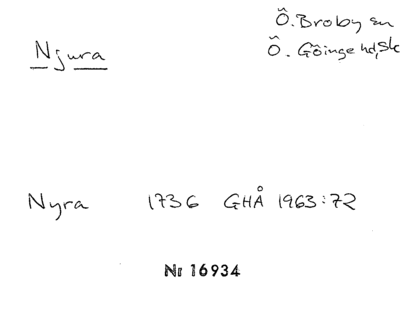 Njura
Ö. Broby sn
Ö. Göinge hd, Sk
Nyra 1736 GHÅ 1963:72
Nr 16934